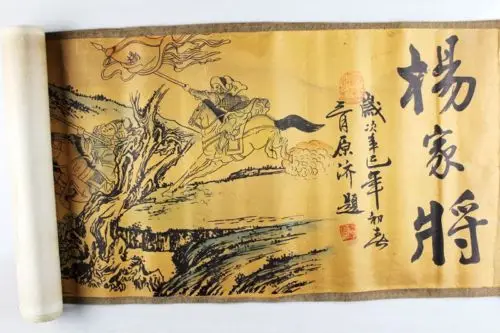 楊家將
歲次辛巳年初春
原济題